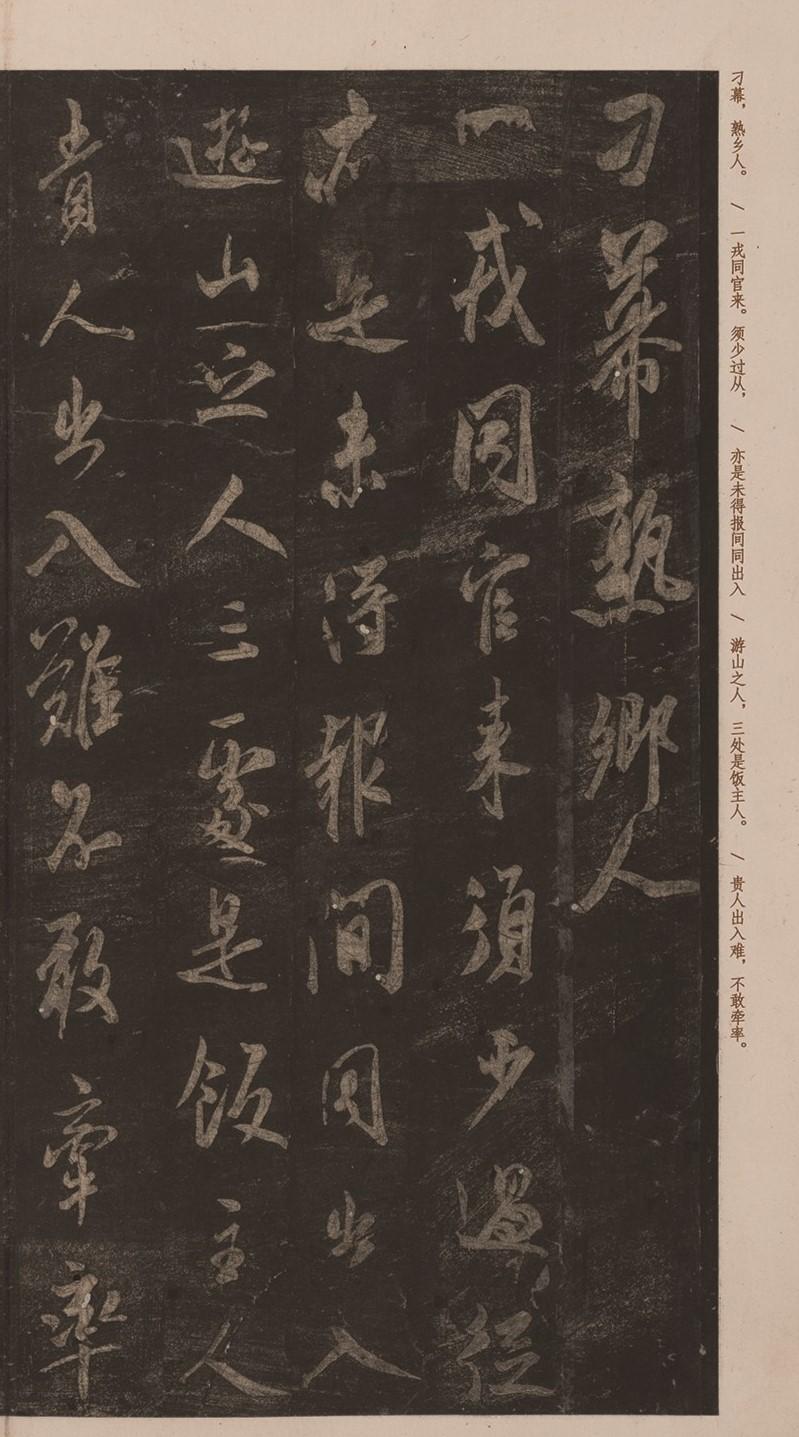 刁幕，熟乡人。／一戎同官来。须少过从，／亦是未得报间同出入／游山之人，三处是饭主人。／贵人出入难，不敢牵率。
刁幕熟鄉人
一戎同官来須少過從
亦是未得報間同出入
遊山之人三處是飯主人
貴人出入難不敢牽率